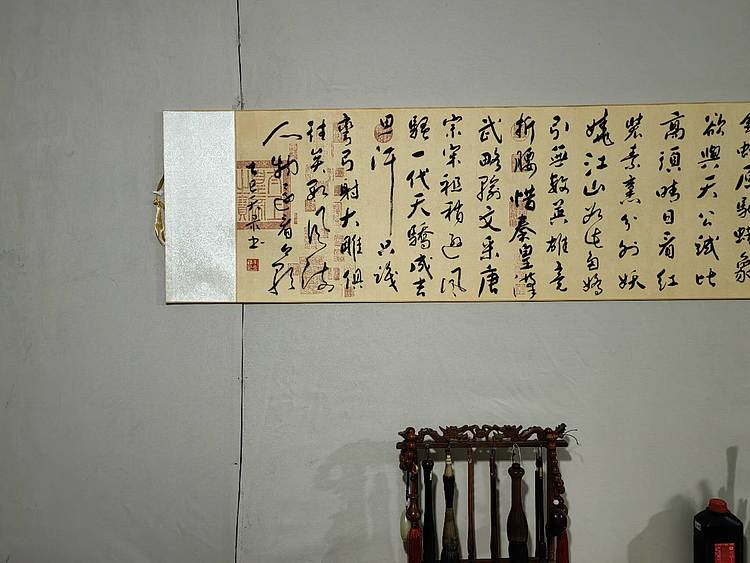 蛇原馳蠟象
欲與天公試比
高須晴日看紅
裝素裹分外妖
嬈江山如此多嬌
引無數英雄竞
折腰惜秦皇漢
武略輸文采唐
宗宋祖稍遜風
騷一代天驕成吉
思汗只識
彎弓射大雕俱
往矣數風流
人物還看今朝